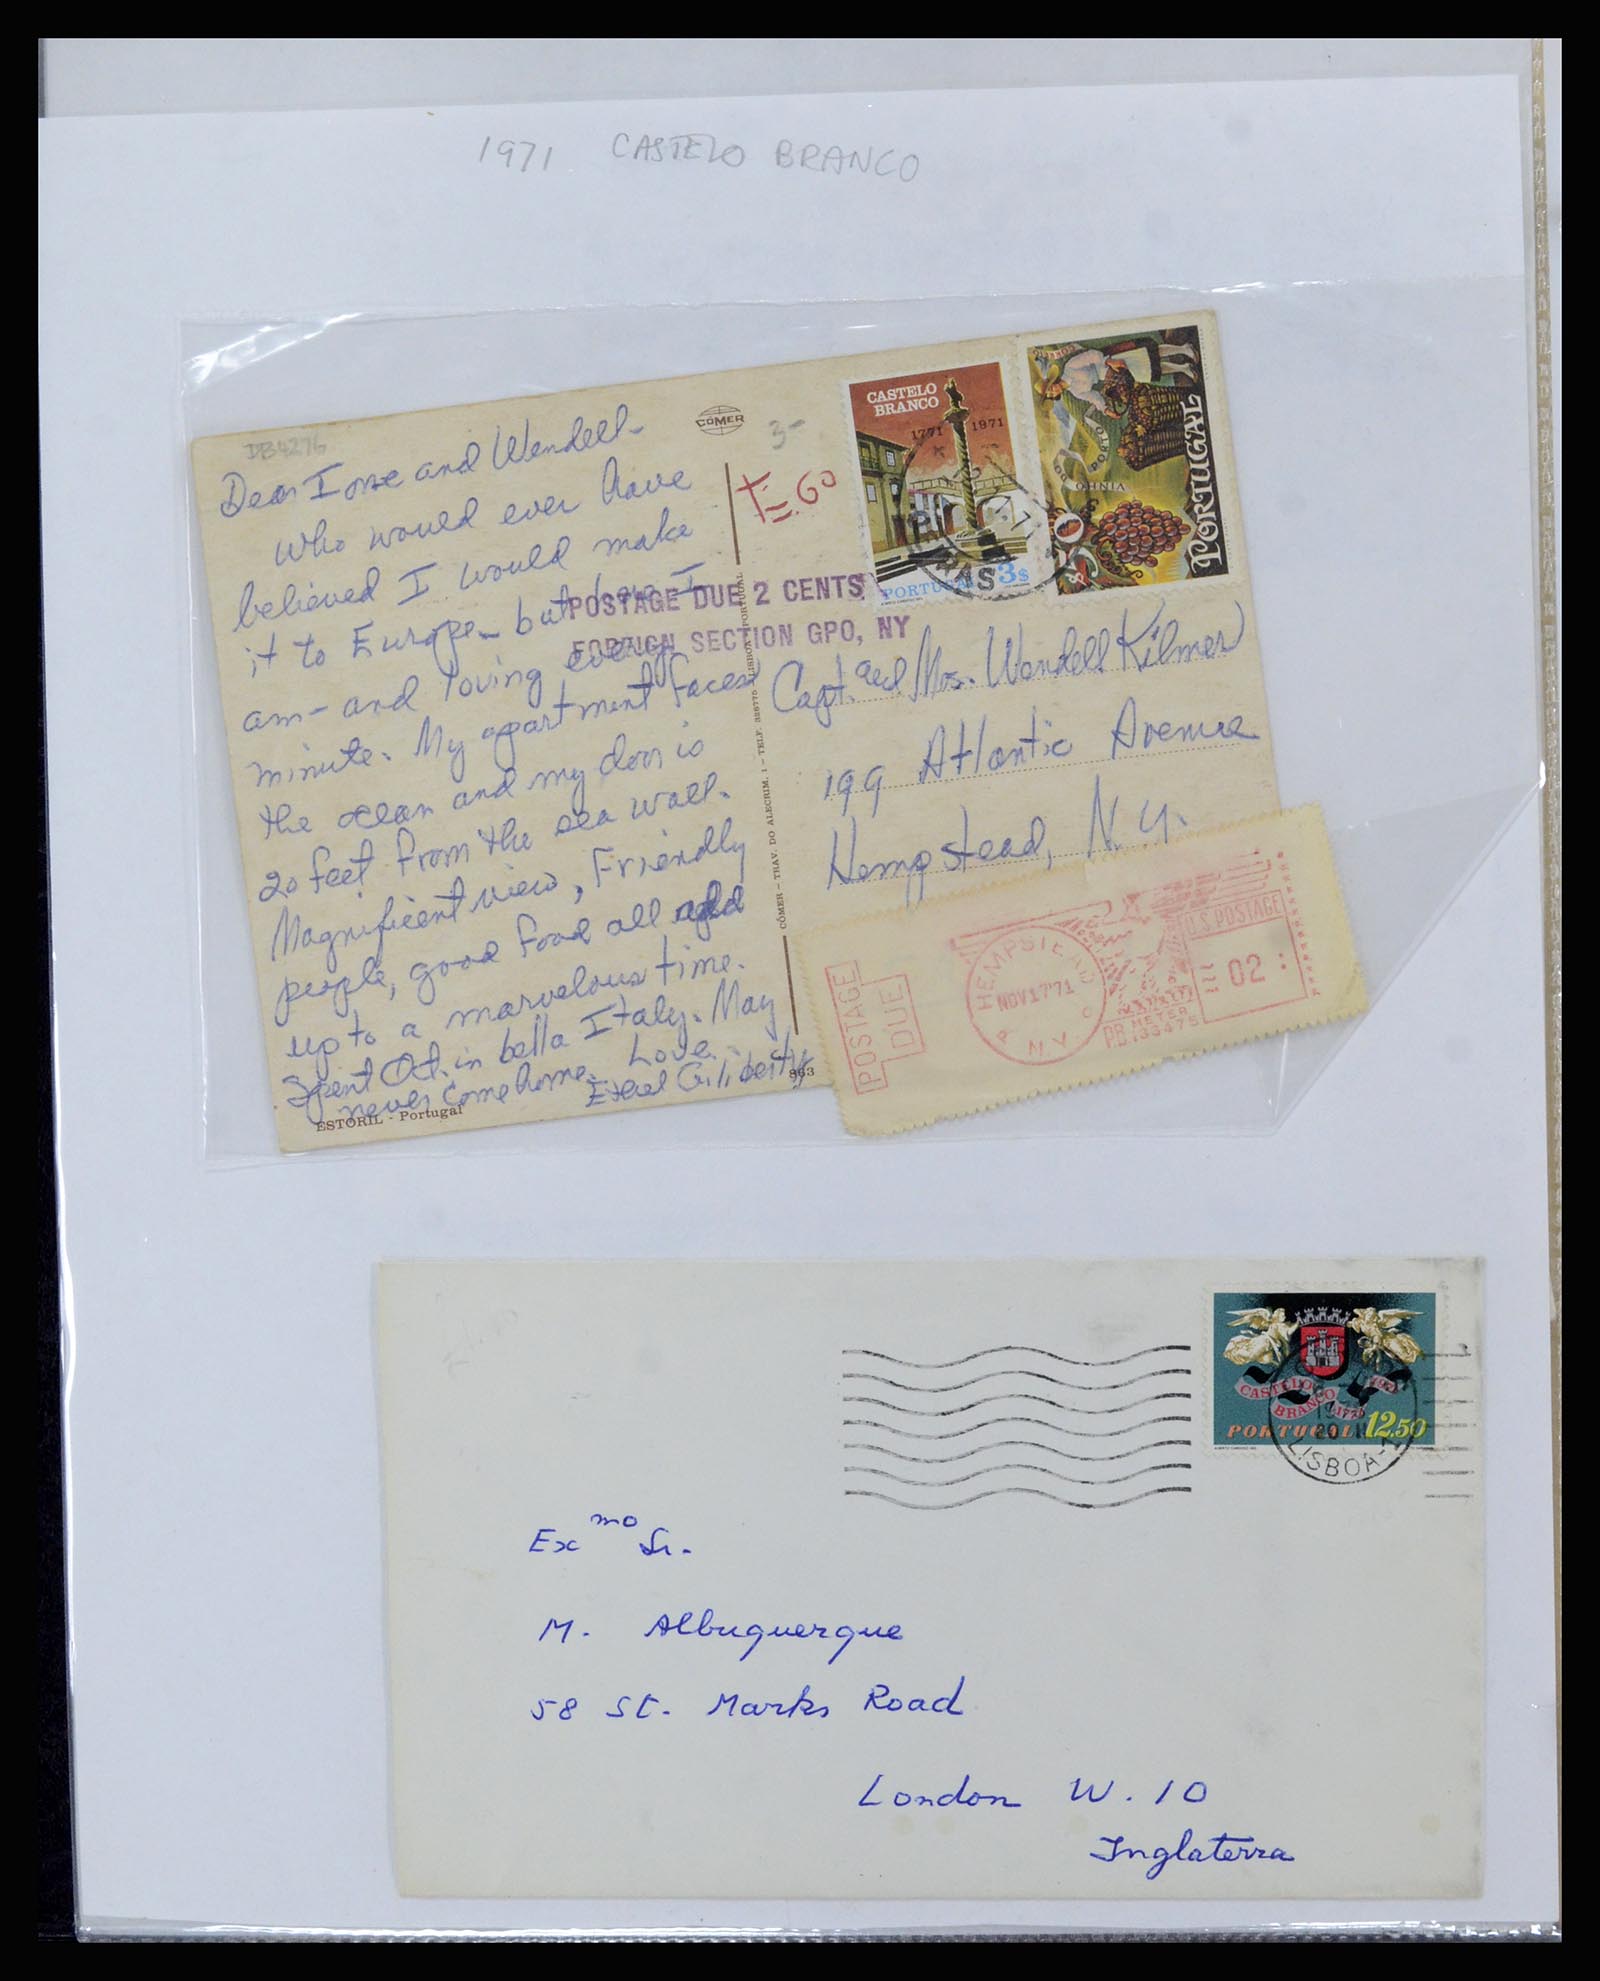 1971 CASTELO BRANCO
DB4276
CÓMER
3-
Dear Ione and Wendell-
Who would ever have
believed I would make
it to Europe - but here I
am - and loving every
minute. My apartment faces
the ocean and my door is
20 feet from the sea wall.
Magnificent view, Friendly
people, good food all adds
up to a marvelous time.
Spent Oct. in bella Italy. May
never come home. Love
Ethel
ESTORIL - Portugal
963
CÓMER - TRAV. DO ALECRIM, 1 - TELF. 328775 LISBOA PORTUGAL
T 60
POSTAGE DUE 2 CENTS
FOREIGN SECTION GPO, NY
CASTELO
BRANCO
1771 1971
PORTUGAL 3$
PORTUGAL
VINHO DO PORTO
50
Capt. and Mrs. Wendell Kilmer
199 Atlantic Avenue
Hempstead, N.Y.
POSTAGE
DUE
HEMPSTEAD
NOV 17 '71
N.Y.
U.S. POSTAGE
02
P.B. METER
133475
CASTELO
BRANCO
1771
1971
PORTUGAL 12.50
LISBOA-1
Ex mo Sr.
M. Albuquerque
58 St. Marks Road
London W. 10
Inglaterra